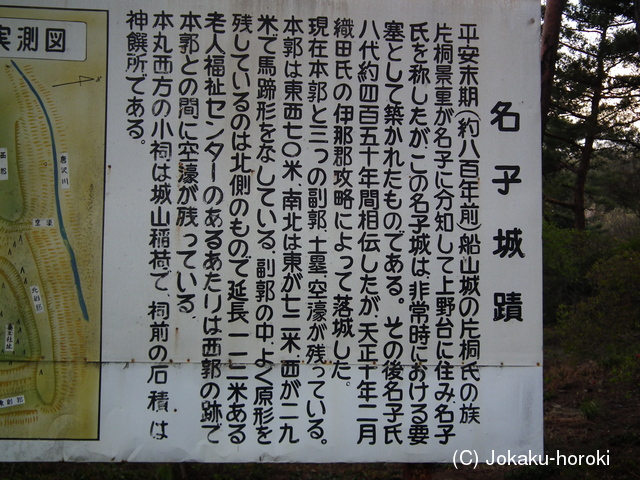 名子城蹟
平安末期(約八百年前)船山城の片桐氏の族
片桐景重が名子に分知して上野台に住み名子
氏を称したが、この名子城は、非常時における要
塞として築かれたものである。その後名子氏
八代約四百五十年間相伝したが、天正十年二月
織田氏の伊那郡攻略によって落城した。
現在本郭と三つの副郭、土塁、空濠が残っている。
本郭は東西七〇米、南北は東が七二米、西が二九
米で馬蹄形をなしている、副郭の中、よく原形を
残しているのは北側のもので延長、一一二米ある
老人福祉センターのあるあたりは西郭の跡で
本郭との間に空濠が残っている、
本丸西方の小祠は城山稲荷で、祠前の石積は
神饌所である。
実測図
唐沢川
空濠
(C) Jokaku-horoki